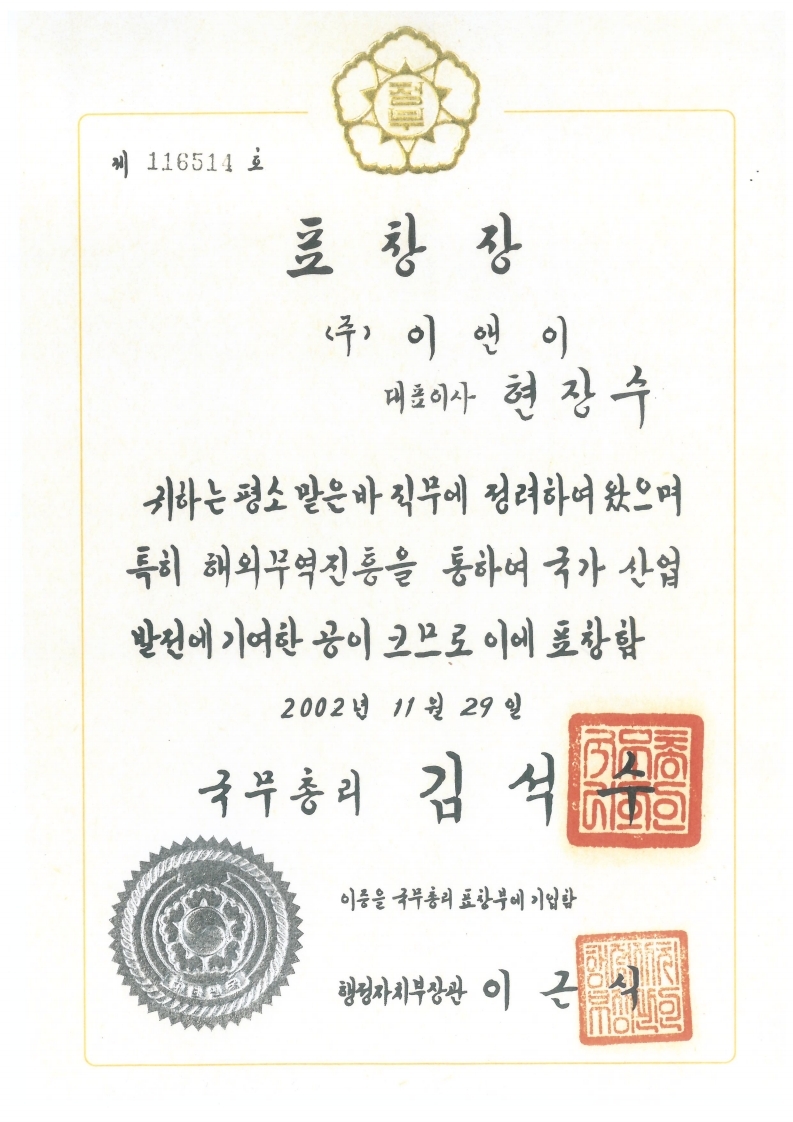 정부
제 116514 호
표 창 장
(주) 이 앤 이
대표이사 현 장 수
귀하는 평소 맡은 바 직무에 정려하여 왔으며
특히 해외무역진흥을 통하여 국가 산업
발전에 기여한 공이 크므로 이에 표창함
2002년 11월 29일
국무총리 김 석 수
대한민국
이증을 국무총리 표창부에 기입함
행정자치부장관 이 근 식